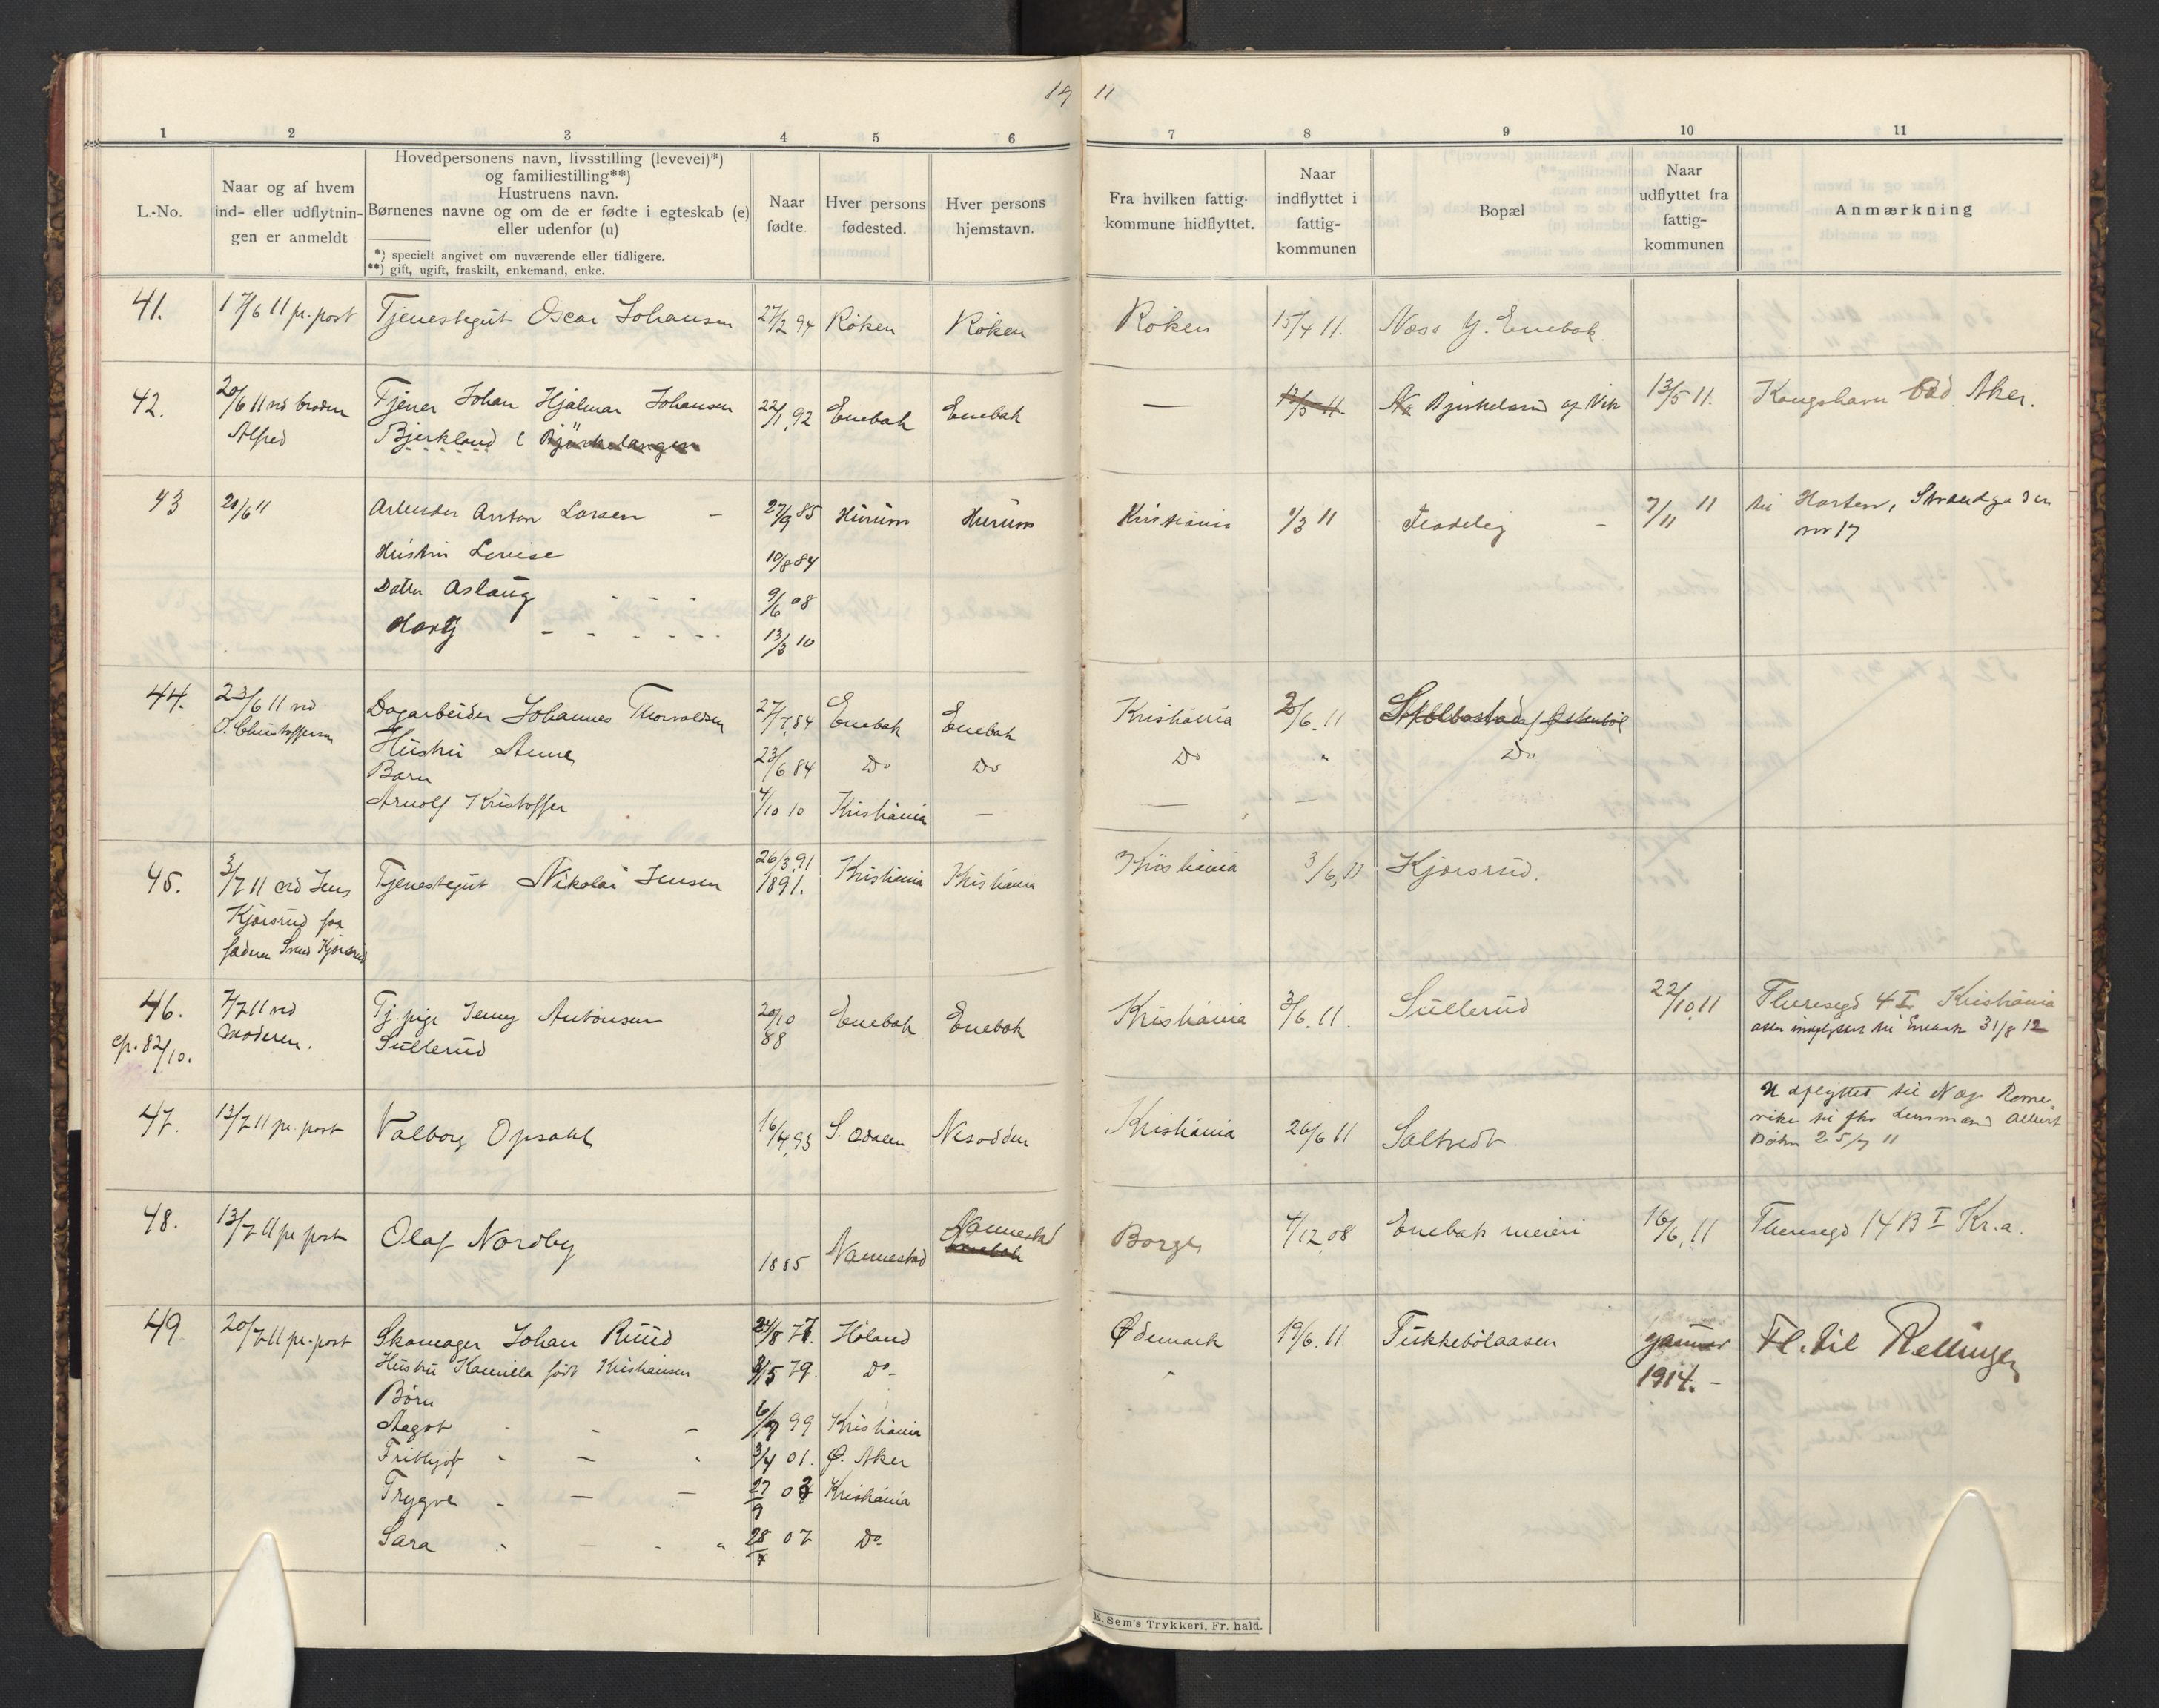 19 11
1 2 3 4 5 6 7 8 9 10 11
L.-No.
Naar og af hvem
ind- eller udflytnin-
gen er anmeldt
Hovedpersonens navn, livsstilling (levevei)*)
og familiestilling**)
Hustruens navn.
Børnenes navne og om de er fødte i egteskab (e)
eller udenfor (u)
*) specielt angivet om nuværende eller tidligere.
**) gift, ugift, fraskilt, enkemand, enke.
Naar
fødte.
Hver persons
fødested.
Hver persons
hjemstavn.
Fra hvilken fattig-
kommune hidflyttet.
Naar
indflyttet i
fattig-
kommunen
Bopæl
Naar
udflyttet fra
fattig-
kommunen
Anmærkning
41. 17/6 11 pr. post Tjenestegut Oscar Johansen 27/2 94 Röken Röken Röken 15/4 11. Næss Y. Enebak
42. 20/6 11 ved broderen Tjener Johan Hjalmar Johansen 22/1, 92 Enebak Enebak — 13/5 11. Bjerkelund af Vik 13/5 11. Kongshavn bad Aker.
Alfred Bjerklund
43 20/6 11 Arbeider Anton Larsen 27/9 85 Hurum Hurum Kristiania 1/3 11 7/11 11 til Horten, Strandgaden
nr 17
Hustru Lovise 10/8 84
Datter Aslaug 9/6 08
13/3 10
44. 23/6 11 ved Dagarbeider Johannes Thorvaldsen 27/7, 84 Enebak Enebak Kristiania /6. 11
O. Christoffersen Hustru Anne 23/6 84 Do Do Do " Do
Barn
Arnolf Kristoffer 4/10 10 Kristiania — — —
45. 3/7 11 ved Jens Tjenestegut Nikolai Jensen 26/3. 91 1891. Kristiania Kristiania Kristiania 3/6, 11 Kjorsrud.
Kjorsrud for
faderen Kjorsrud
46. 7/7 11 ved Tj. pige Jenny Antonsen 20/10 88 Enebak Enebak Kristiania 3/6. 11. Sullerud 22/10 11 Theresegd 4 I Kristiania
cfr. 82/10. Moderen. Sullerud atter indflyttet til Enebak 31/8 12
47. 13/7 11 pr. post Valborg Opsahl 16/4, 93 S. Odalen Nesodden Kristiania 26/6 11 Saltvedt. Udflyttet til N og Rome-
rike til fhv Lensmand Albert
Böhn 25/7 11
48. 13/7 11 pr post Olaf Nordby 1885 Nannestad Nannestad Borge 4/12, 08 Enebak meieri 16/6, 11 Theresegd 14 B I Kr.a.
49 20/7 11 pr. post Skomager Johan Ruud 24/8 77. Höland Ødemark 19/6. 11. Tukkebölaasen januar Fl. til Rellingen
1914. -
Hustru Kamilla födt Kristiansen /5 79. Do -
Börn
Aagot 6/9 99 Kristiania
Frithjof 3/4 01. Ø. Aker
Trygve 27/9 03 Kristiania
Sara 28/ 07 Do
E. Sem's Trykkeri, Fr. hald.